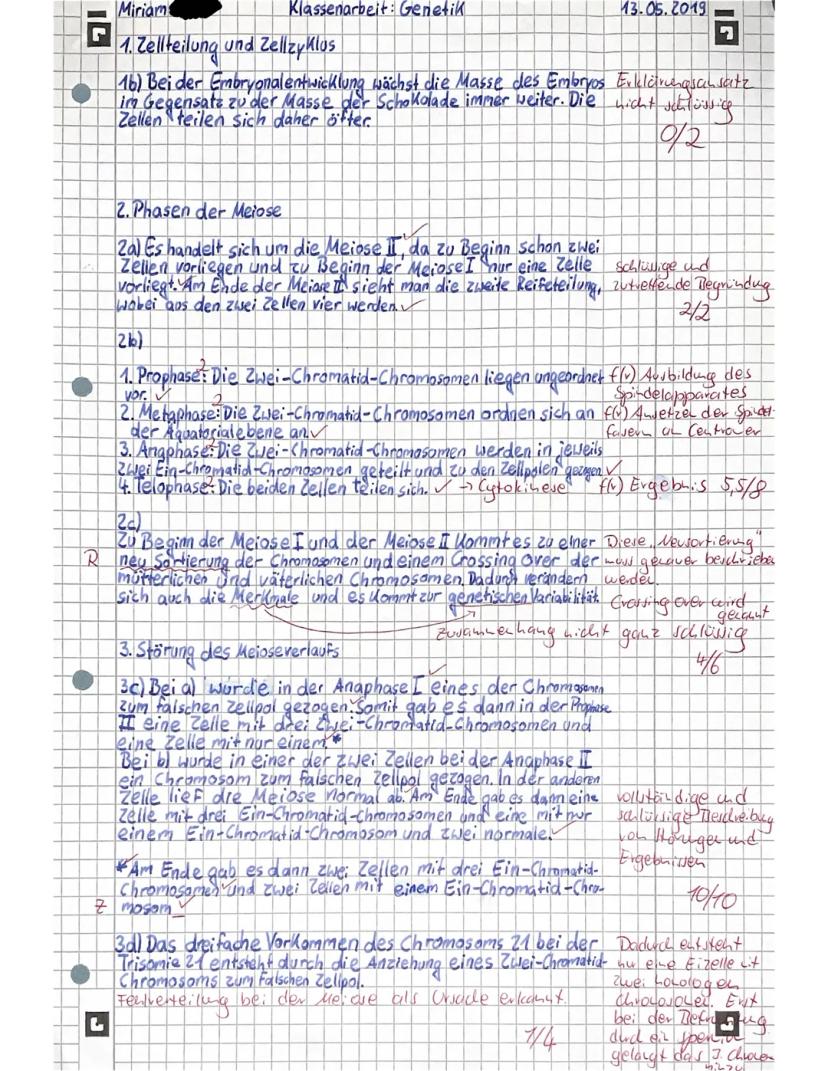 Miriam Klassenarbeit: Genetik 13.05.2019
1. Zellteilung und Zellzyklus
1b) Bei der Embryonalentwicklung wächst die Masse des Embryos
im Gegensatz zu der Masse der Schokolade immer weiter. Die
Zellen teilen sich daher öfter.
Erklärungsansatz
nicht schlüssig
0/2
2. Phasen der Meiose
2a) Es handelt sich um die Meiose II, da zu Beginn schon zwei
Zellen vorliegen und zu Beginn der Meiose I nur eine Zelle
vorliegt. Am Ende der Meiose II sieht man die zweite Reifeteilung,
wobei aus den zwei Zellen vier werden.
schlüssige und
zutreffende Begründung
2/2
2b)
1. Prophase 2: Die Zwei-Chromatid-Chromosomen liegen ungeordnet
vor.
2. Metaphase 2: Die Zwei-Chromatid-Chromosomen ordnen sich an
der Äquatorialebene an.
3. Anaphase 2: Die Zwei-Chromatid-Chromosomen werden in jeweils
zwei Ein-Chromatid-Chromosomen geteilt und zu den Zellpolen gezogen
4. Telophase 2: Die beiden Zellen teilen sich. → Cytokinese
f(v) Ausbildung des
Spindelapparates
f(v) Ansetzen der Spindel
fasern an Centromer
f(v) Ergebnis 5,5/8
2c)
Zu Beginn der Meiose I und der Meiose II kommt es zu einer
R neu Sortierung der Chromosomen und einem Crossing Over der
mütterlichen und väterlichen Chromosomen. Dadurch verändern
sich auch die Merkmale und es kommt zur genetischen Variabilität.
Diese „Neusortierung"
muss genauer beschrieben
werden.
Crossing over wird
genannt
Zusammenhang nicht ganz schlüssig
4/6
3. Störung des Meioseverlaufs
3c) Bei a) wurde in der Anaphase I eines der Chromosomen
zum falschen Zellpol gezogen. Somit gab es dann in der Prophase
II eine Zelle mit drei Zwei-Chromatid-Chromosomen und
eine Zelle mit nur einem.*
Bei b) wurde in einer der zwei Zellen bei der Anaphase II
ein Chromosom zum falschen Zellpol gezogen. In der anderen
Zelle lief die Meiose normal ab. Am Ende gab es dann eine
Zelle mit drei Ein-Chromatid-Chromosomen und eine mit nur
einem Ein-Chromatid-Chromosom und zwei normale.
*Am Ende gab es dann zwei Zellen mit drei Ein-Chromatid-
Chromosomen und zwei Zellen mit einem Ein-Chromatid-Chro-
Z mosom
vollständige und
schlüssige Beschreibung
von Störungen und
Ergebnissen
10/10
3d) Das dreifache Vorkommen des Chromosoms 21 bei der
Trisomie 21 entsteht durch die Anziehung eines Zwei-Chromatid-
Chromosoms zum falschen Zellpol.
Fehlverteilung bei der Meiose als Ursache erkannt.
1/4
Dadurch entsteht
nur eine Eizelle mit
zwei homologen
Chromosomen. Erst
bei der
durch ein
gelangt das 3.